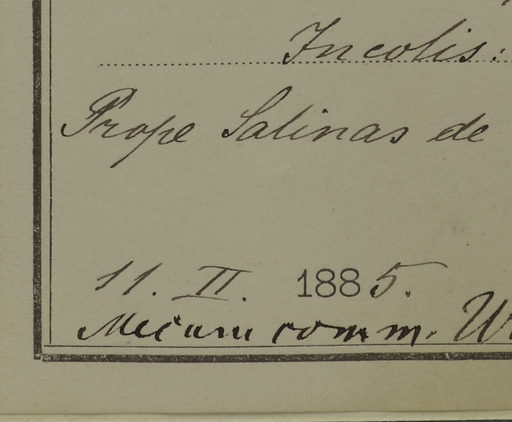 Incolis:
Prope Salinas de
11. II. 1885.
Mecum comm. W